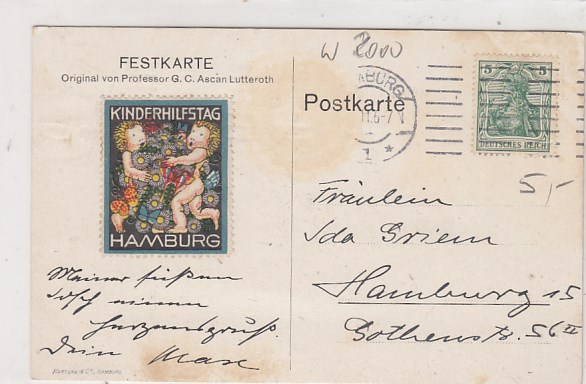 W 2000
FESTKARTE
Original von Professor G. C. Ascan Lutteroth
KINDERHILFSTAG
HAMBURG
Meiner süßen
Idsch einen
Herzensgruß.
Dein Max
Postkarte
HAMBURG
11.6-7 V
1 *
5 5
DEUTSCHES REICH
5,-
Fräulein
Ida Griem
Hamburg 15
Gothenstr. 56 II